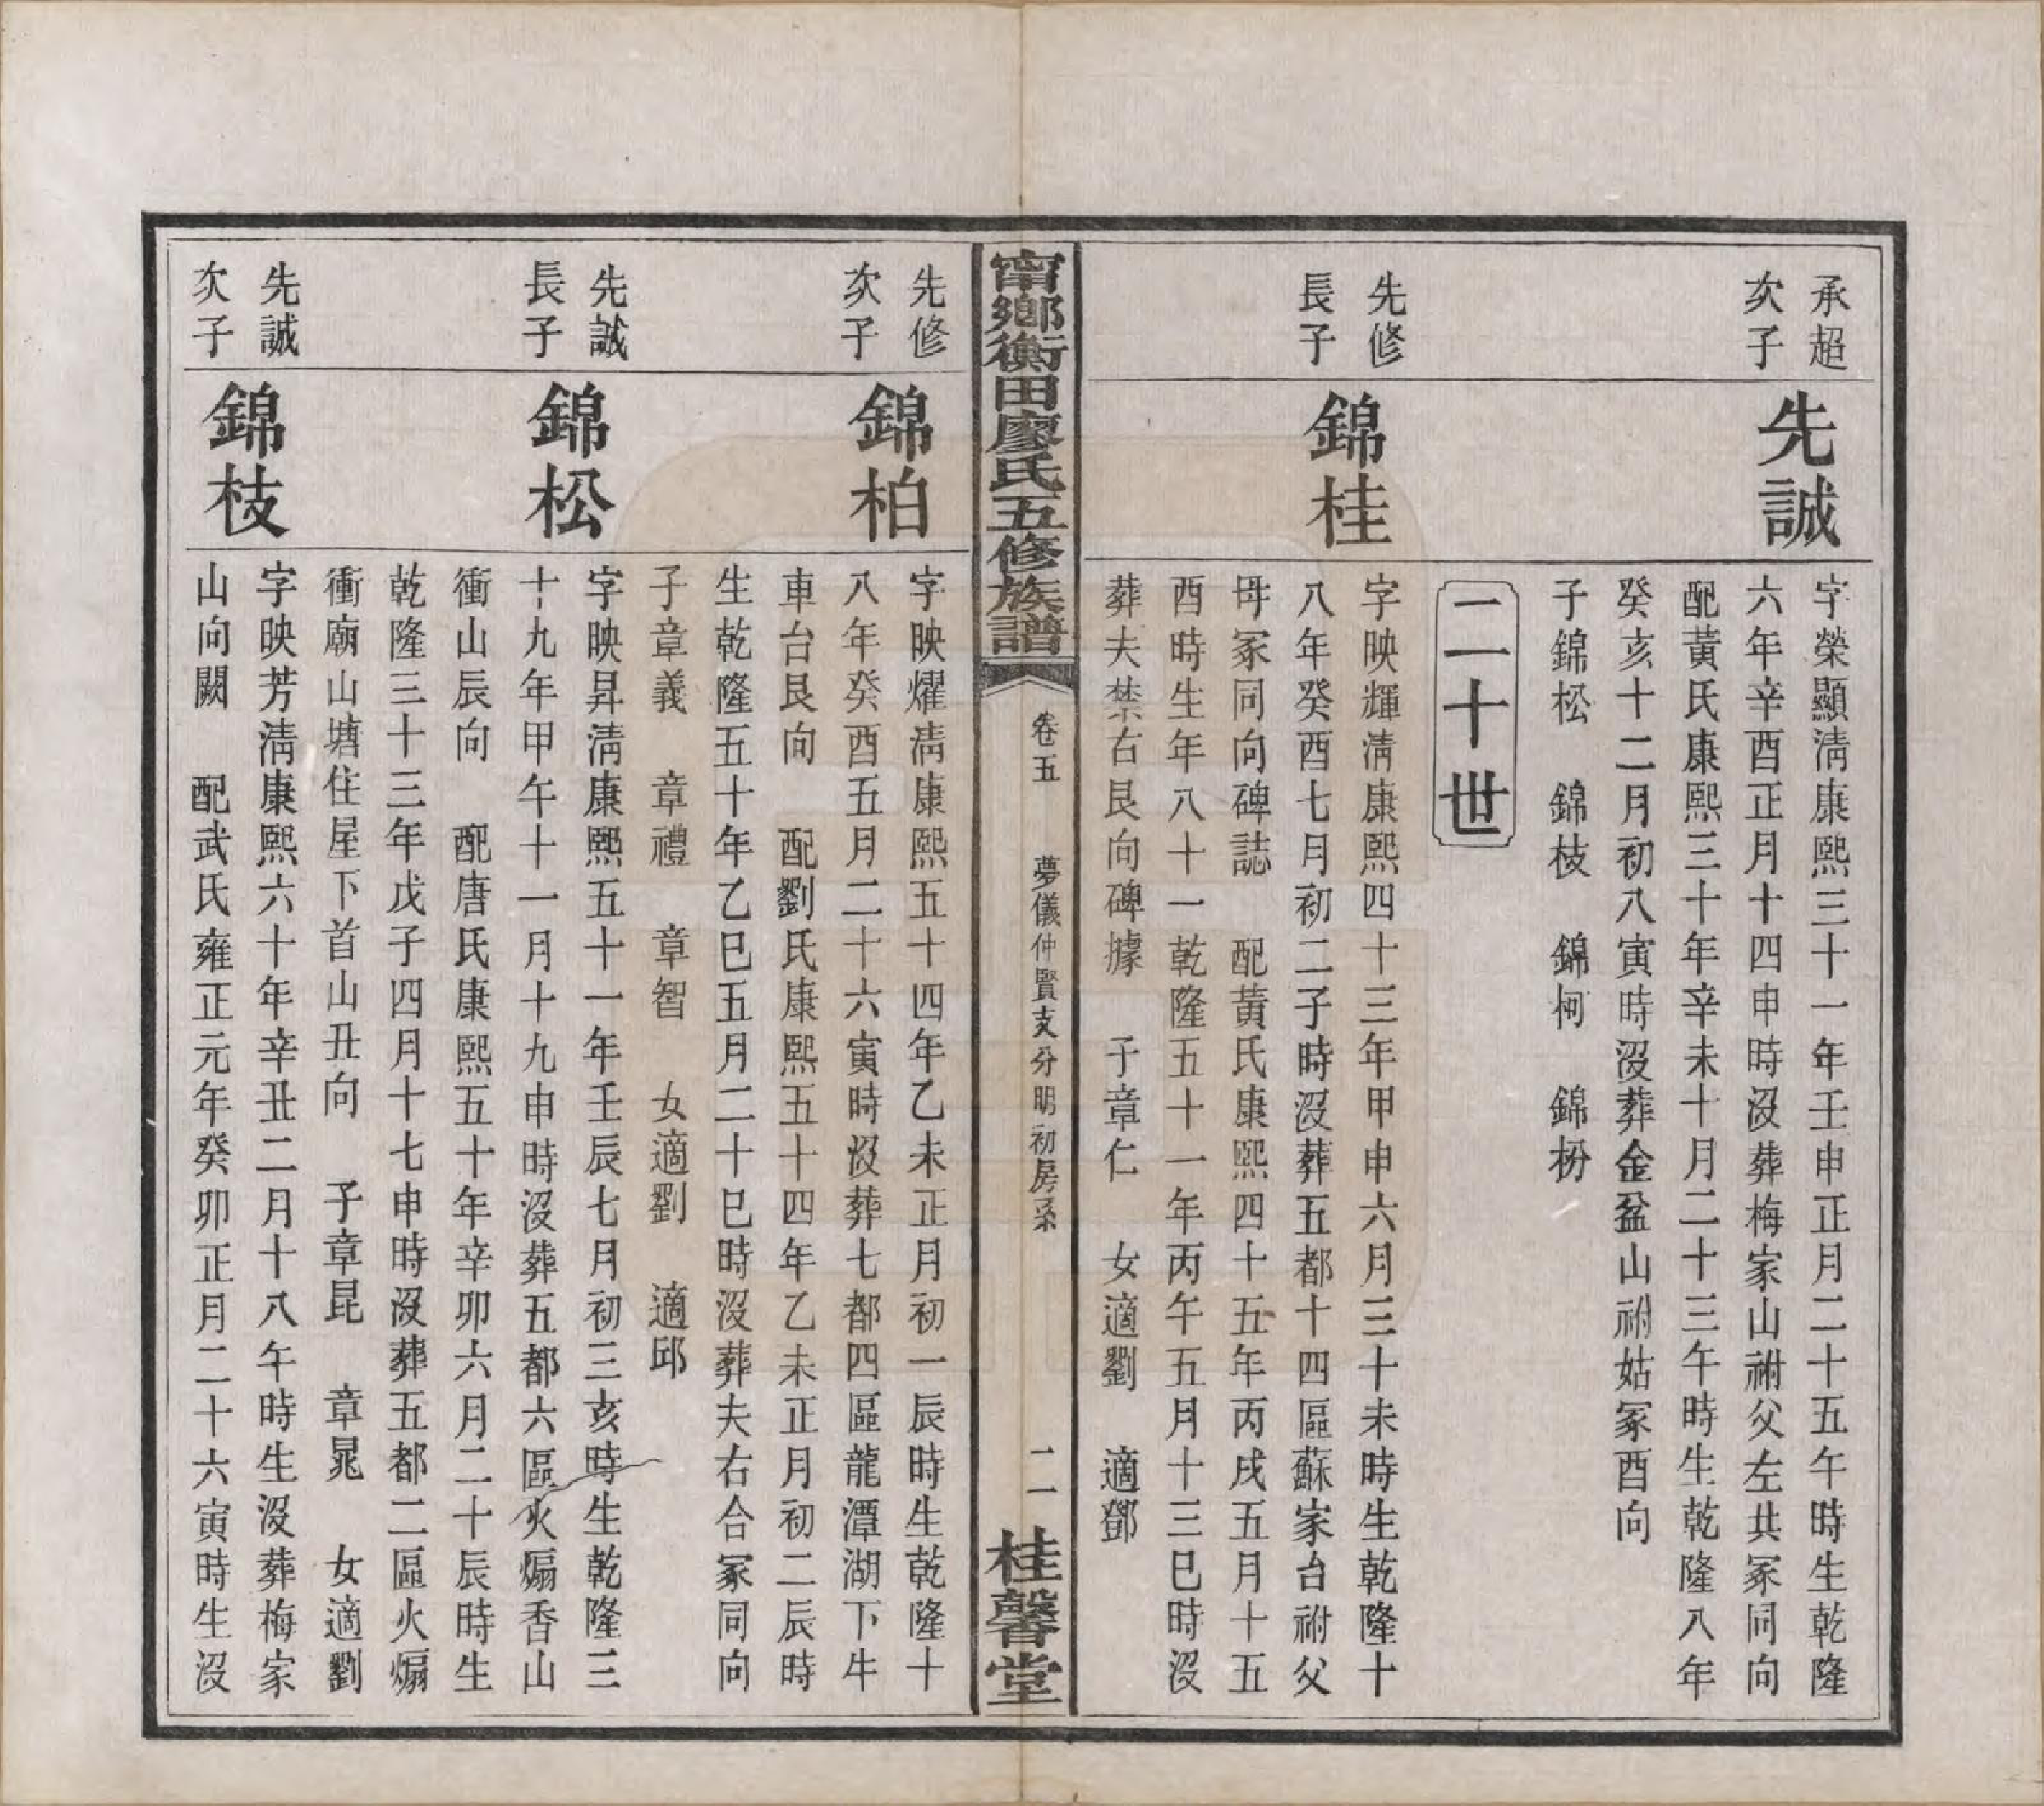 承超
次子
先誠
字榮顯淸康熙三十一年壬申正月二十五午時生乾隆
六年辛酉正月十四申時沒葬梅家山祔父左共冢同向
配黃氏康熙三十年辛未十月二十三午時生乾隆八年
癸亥十二月初八寅時沒葬金盆山祔姑冢酉向
子錦松　錦枝　錦柯　錦枌
二十世
先修
長子
錦桂
字映輝淸康熙四十三年甲申六月三十未時生乾隆十
八年癸酉七月初二子時沒葬五都十四區蘇家台祔父
母冢同向碑誌　配黃氏康熙四十五年丙戌五月十五
酉時生年八十一乾隆五十一年丙午五月十三巳時沒
葬夫禁右艮向碑據　子章仁　女適劉　適鄧
甯鄉衡田廖氏五修族譜
卷五　夢儀仲賢支分明初房系
二
桂馨堂
先修
次子
錦柏
字映燿淸康熙五十四年乙未正月初一辰時生乾隆十
八年癸酉五月二十六寅時沒葬七都四區龍潭湖下牛
車台艮向　配劉氏康熙五十四年乙未正月初二辰時
生乾隆五十年乙巳五月二十巳時沒葬夫右合冢同向
子章義　章禮　章智　女適劉　適邱
先誠
長子
錦松
字映昇淸康熙五十一年壬辰七月初三亥時生乾隆三
十九年甲午十一月十九申時沒葬五都六區火煸香山
衝山辰向　配唐氏康熙五十年辛卯六月二十辰時生
乾隆三十三年戊子四月十七申時沒葬五都二區火煸
衝廟山塘住屋下首山丑向　子章昆　章晁　女適劉
先誠
次子
錦枝
字映芳淸康熙六十年辛丑二月十八午時生沒葬梅家
山向闕　配武氏雍正元年癸卯正月二十六寅時生沒